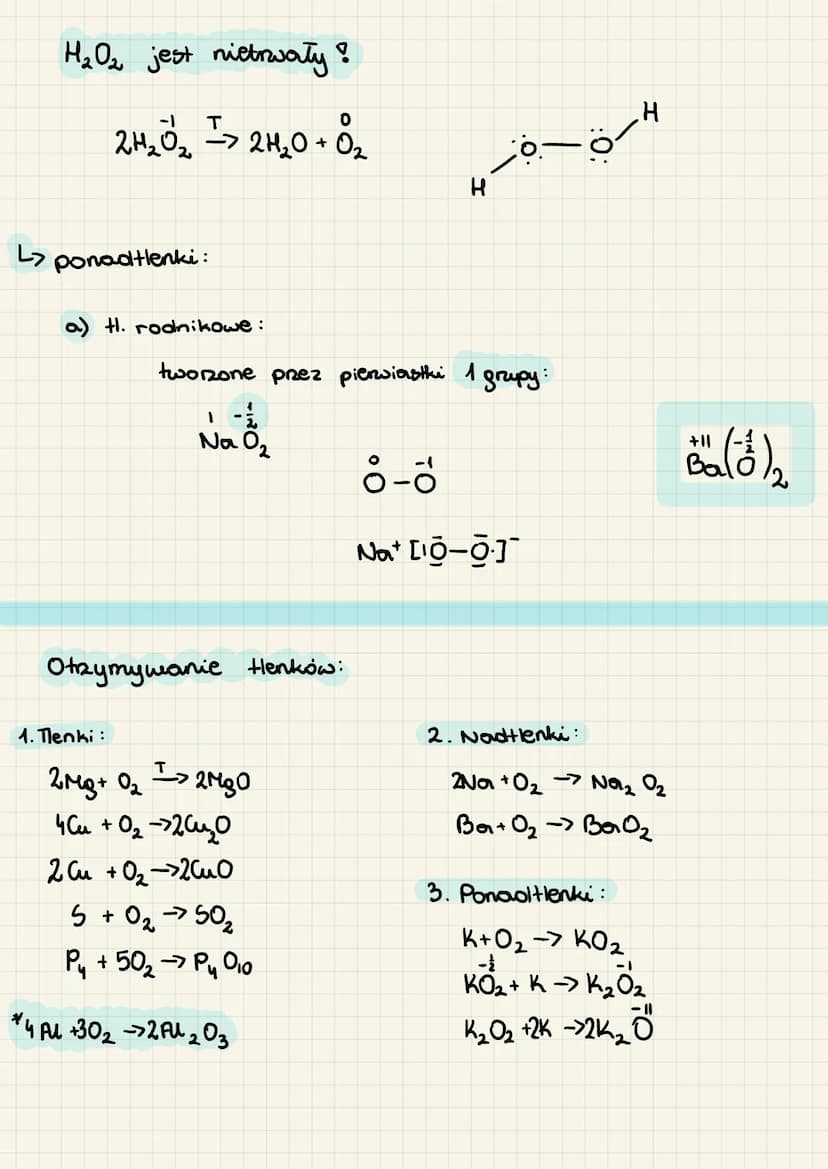 H₂O₂ jest nietrwały !
2H₂O₂⁻¹ →(T) 2H₂O + O₂⁰
H
O — O
H
↳ ponadtlenki:
a) tl. rodnikowe:
tworzone przez pierwiastki 1 grupy:
I -1/2
NaO₂
+II -1/2
Ba(O₂)₂
0 -1
O–O
Na⁺ [|O–O·]⁻
Otrzymywanie tlenków:
1. Tlenki:
2Mg + O₂ →(T) 2MgO
4Cu + O₂ → 2Cu₂O
2Cu + O₂ → 2CuO
S + O₂ → SO₂
P₄ + 5O₂ → P₄O₁₀
*4Al + 3O₂ → 2Al₂O₃
2. Nadtlenki:
2Na + O₂ → Na₂O₂
Ba + O₂ → BaO₂
3. Ponadtlenki:
K + O₂ → KO₂
-1/2 -1
KO₂ + K → K₂O₂
-II
K₂O₂ + 2K → 2K₂O